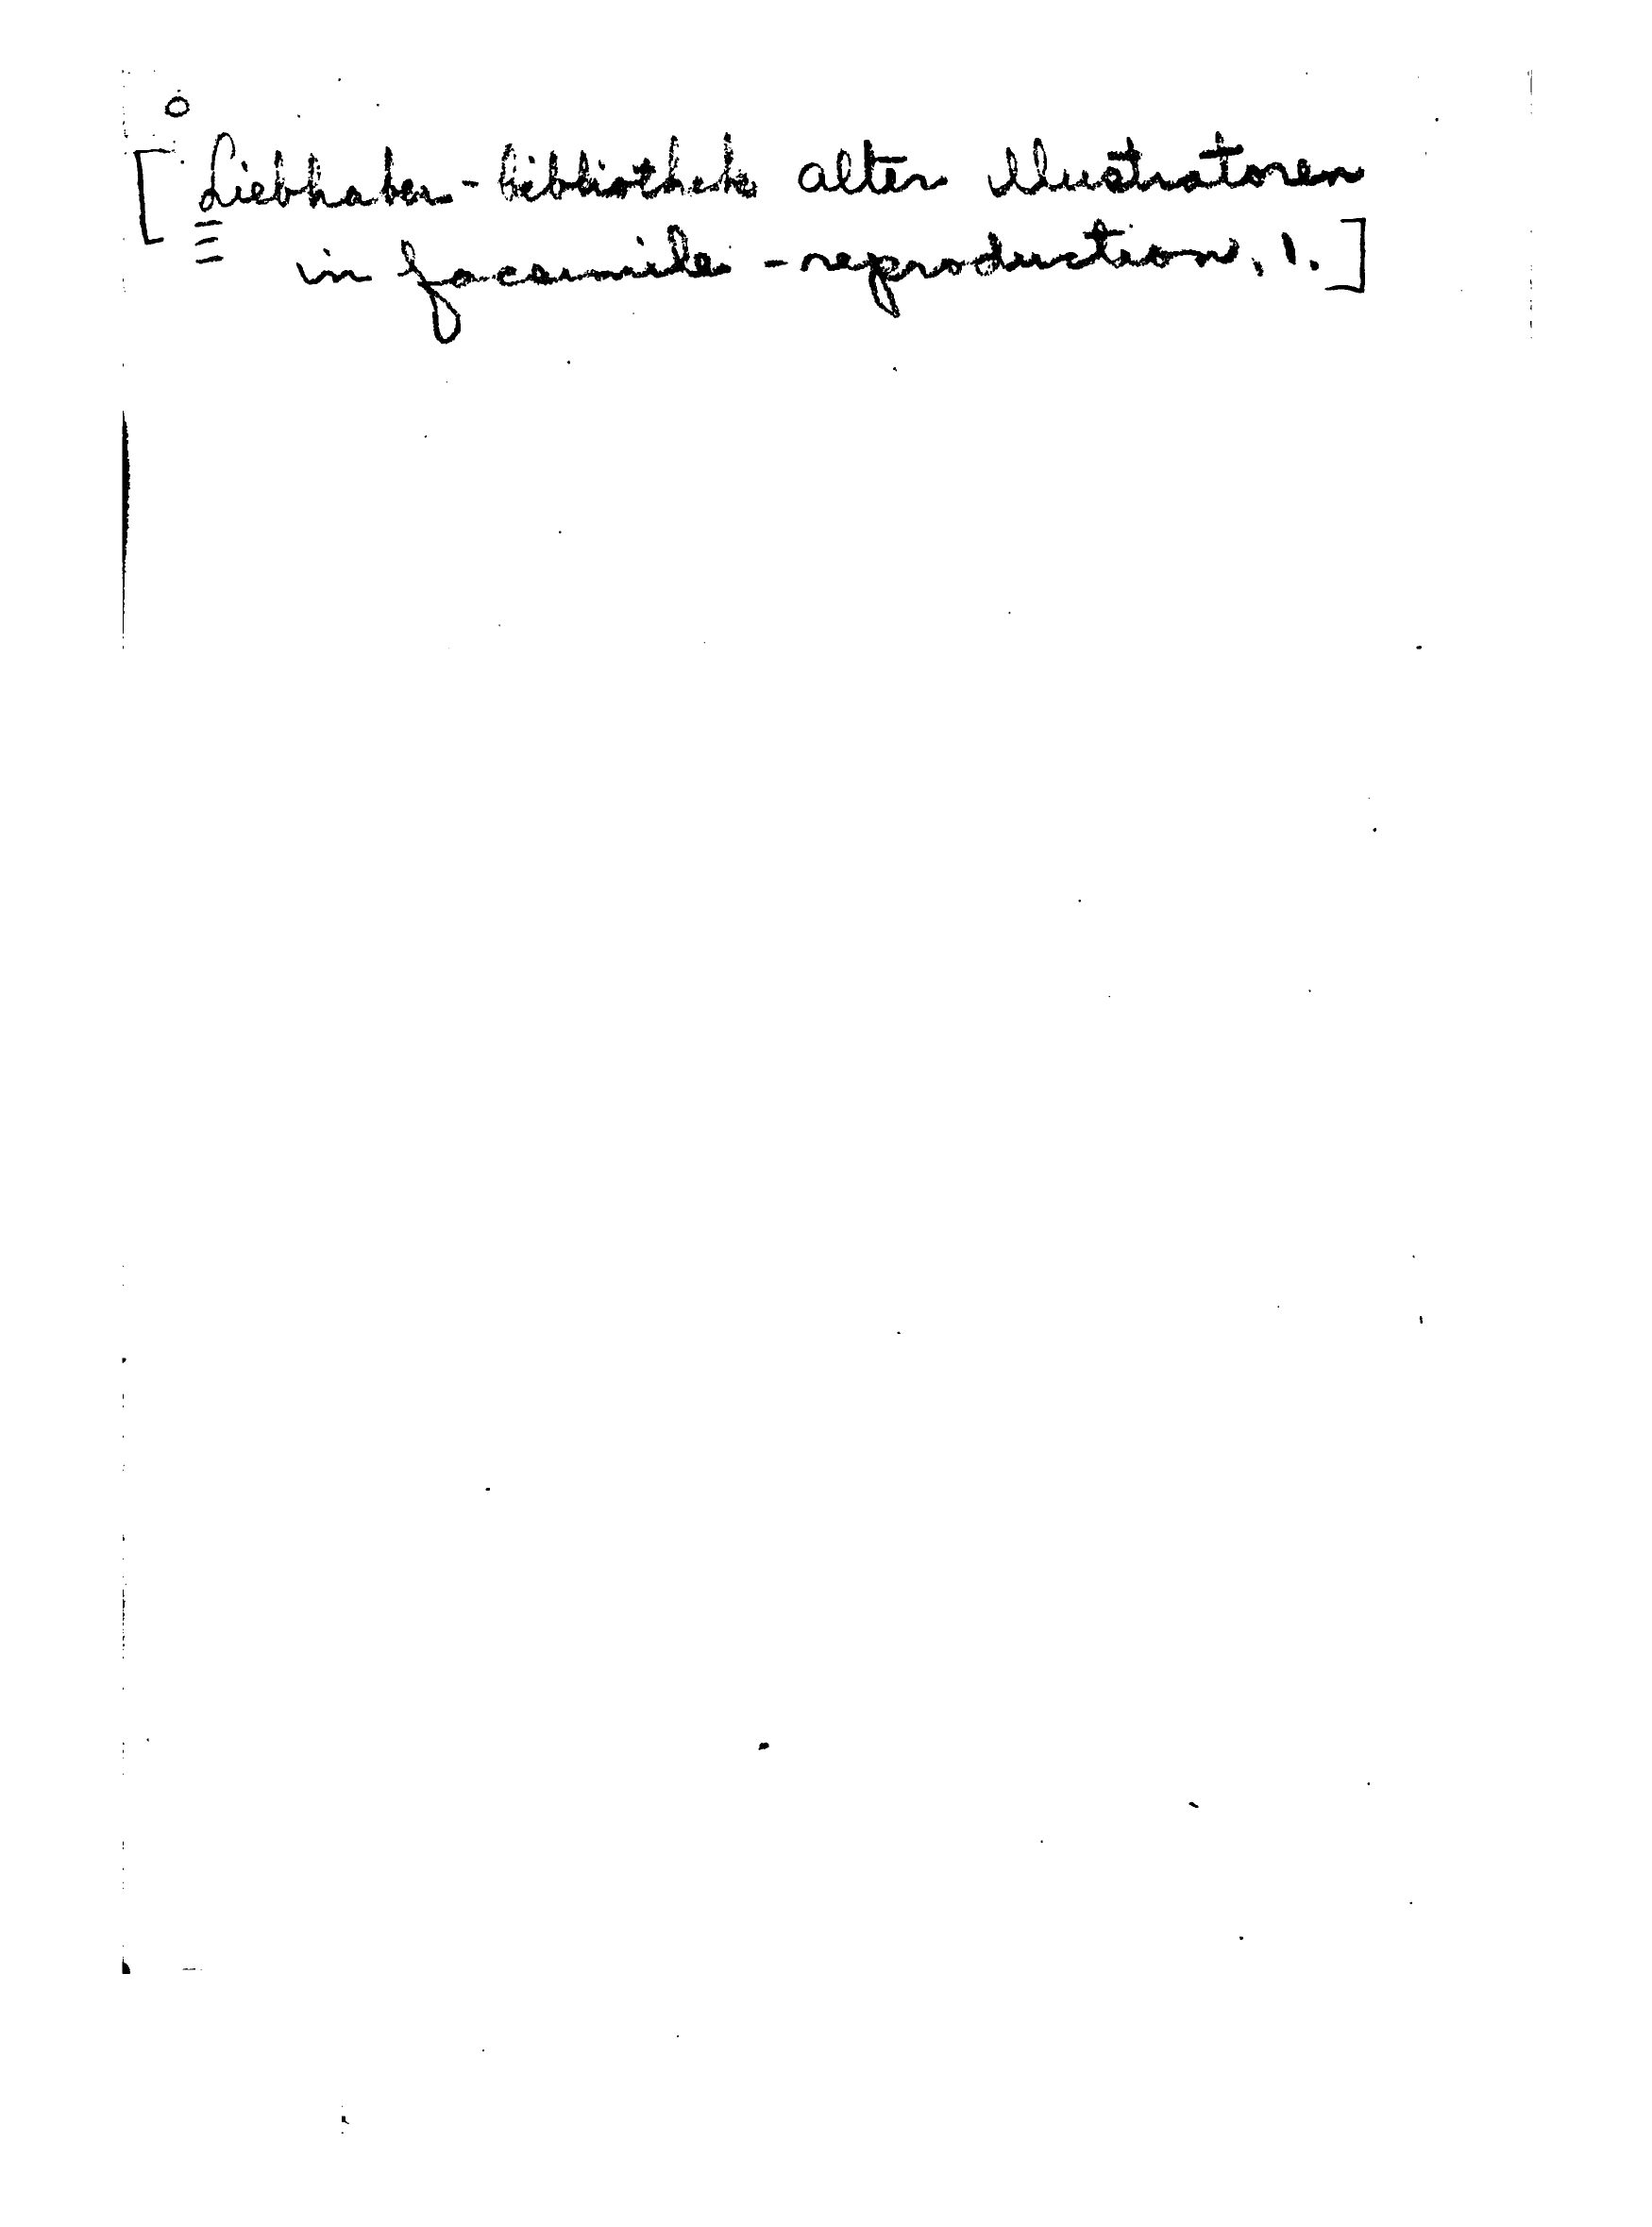 [Liebhaber-bibliothek alter illustratoren
in facsimile-reproduction. 1.]